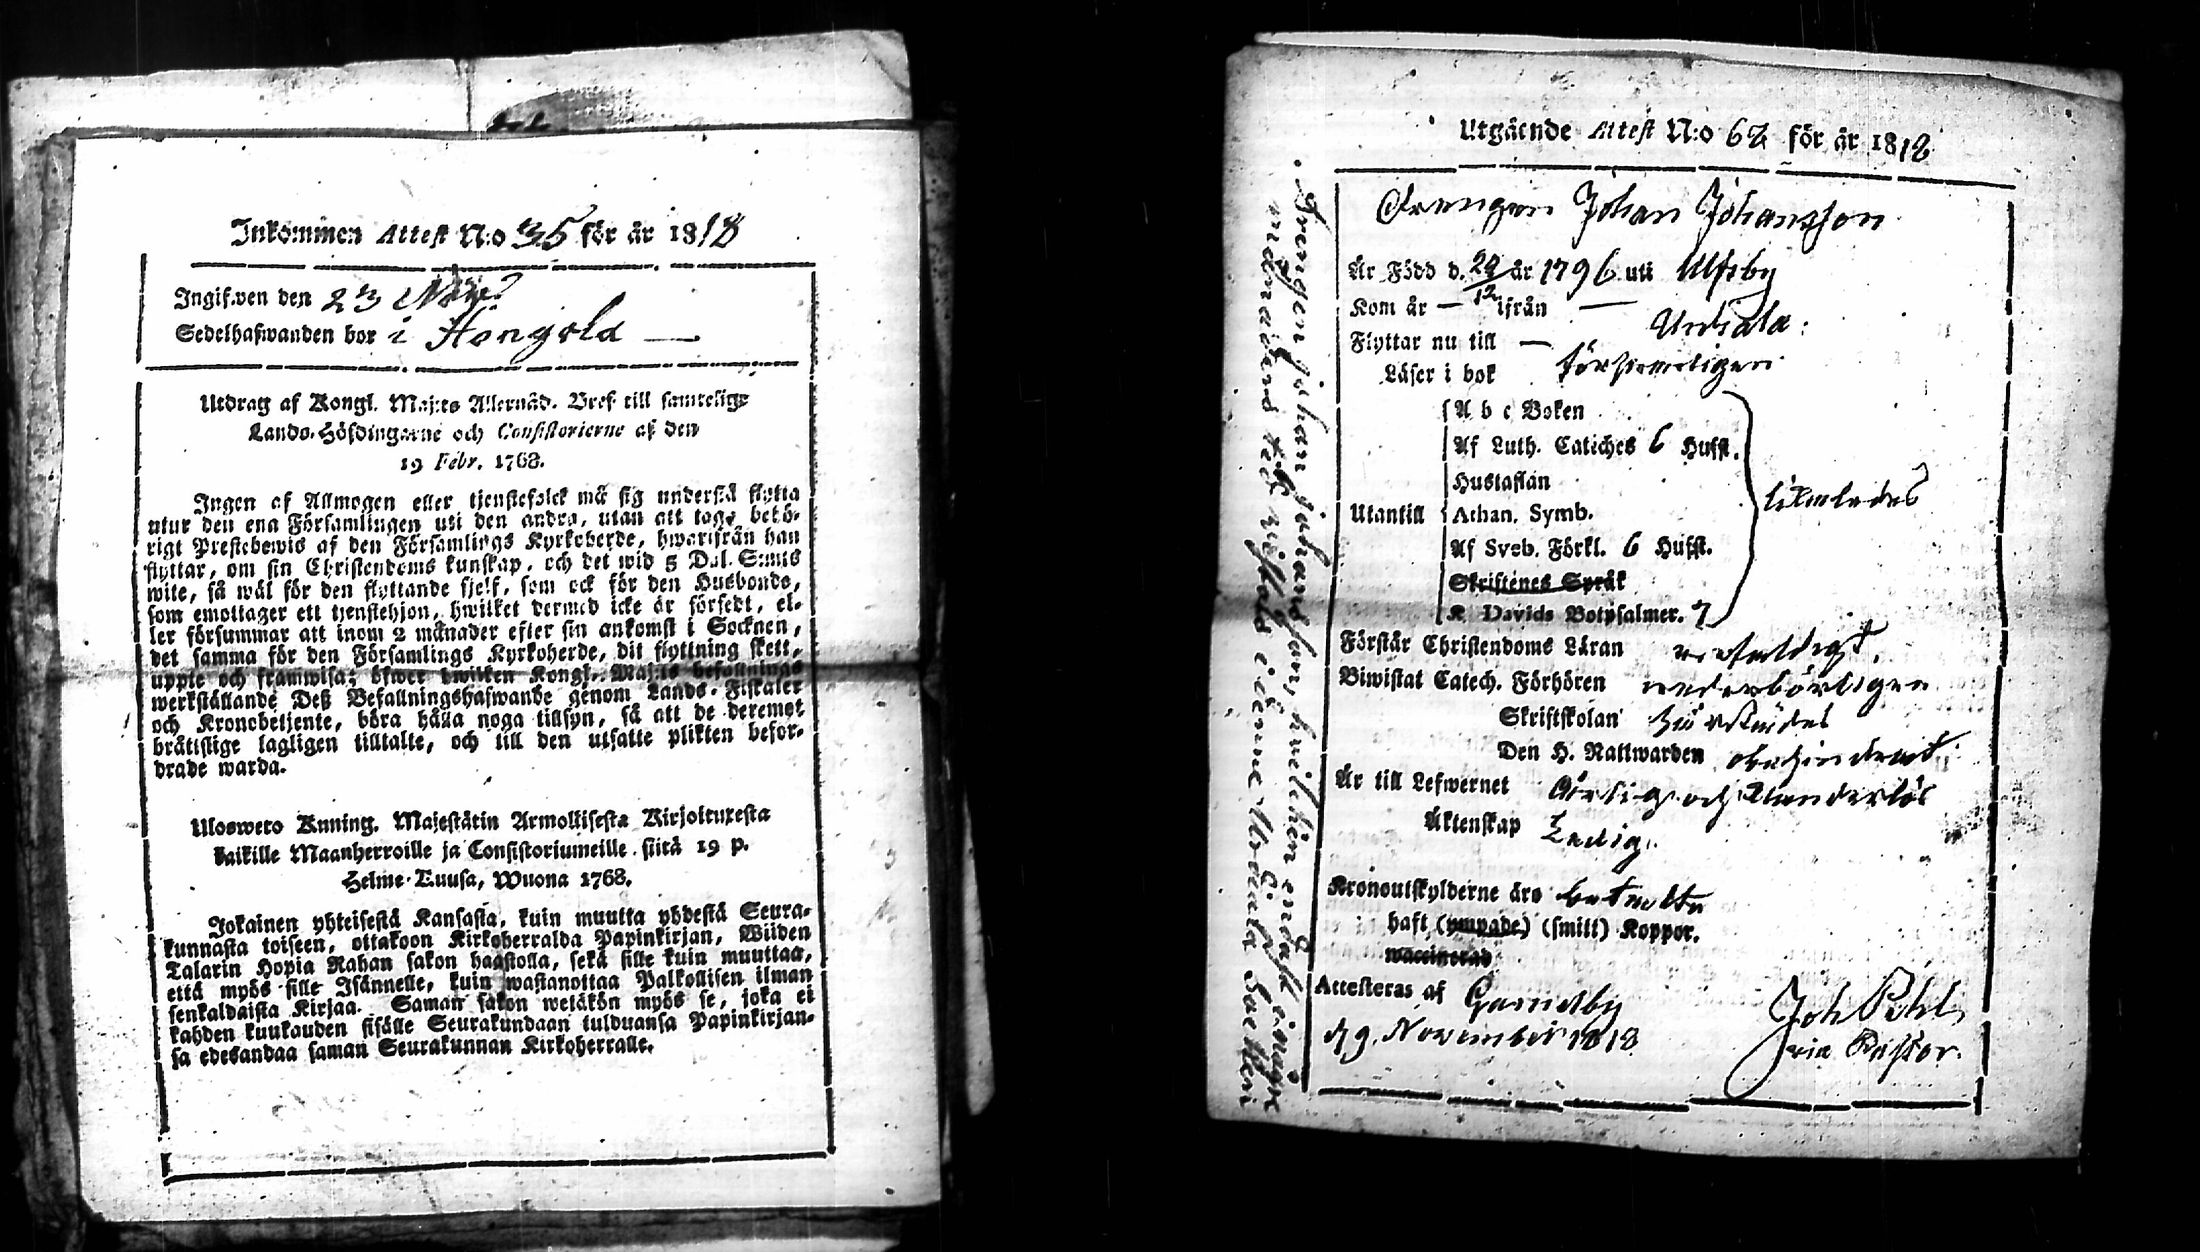 Inkommen Attest N:o 35 för år 1818
Ingifwen den 23 Nov.
Sedelhafwanden bor i Hongola —
Utdrag af Kongl. Maj:ts Allernåd. Bref till samtelige
Lands-Höfdingarne och Consistorierne af den
19 Febr. 1768.
Ingen af Allmogen eller tjenstefolck må sig understå flytta
utur den ena Församlingen uti den andra, utan att taga behö-
rigt Prestebewis af den Församlings Kyrkoherde, hwarifrån han
flyttar, om sin Christendoms kunskap, och det wid 5 Dal. S:mts
wite, så wäl för den flyttande sjelf, som ock för den Husbonde,
som emottager ett tjenstehjon, hwilket dermed icke är försedt, el-
ler försummar att inom 2 månader efter sin ankomst i Socknen,
det samma för den Församlings Kyrkoherde, dit flyttning skett,
uppte och framwisa; öfwer hwilken Kongl. Maj:ts befallnings
werkställande Deß Befallningshafwande genom Lands-Fiskaler
och Kronobetjente, böra hålla noga tillsyn, så att de deremot
bråttslige lagligen tilltalte, och till den utsatte plikten befor-
drade warda.
Uloswero Kuning. Majestätin Armollisesta Kirjoituxesta
kaikille Maanherroille ja Consistoriumeille siitä 19 p.
Helme-Kuusa, Wuona 1768.
Jokainen yhteisestä Kansasta, kuin muutta yhdestä Seura-
kunnasta toiseen, ottakoon Kirkoherralda Papinkirjan, Wiiden
Talarin Hopia Rahan sakon haastolla, sekä sille kuin muuttaa,
että myös sille Isännelle, kuin wastanottaa Palkollisen ilman
senkaldaista Kirjaa. Saman sakon wetäkön myös se, joka ei
kahden kuukauden sisälle Seurakundaan tulduansa Papinkirjan-
sa edesandaa saman Seurakunnan Kirkoherralle.
Utgående Attest N:o 68 för år 1818
Drengen Johan Johansson
Är Född d. 29/12 år 1796 uti Ulfsby
Kom år — ifrån —
Flyttar nu till — Urdiala.
Läser i bok försvarligen
A b c Boken
Af Luth. Catiches 6 Hufst.
Hustaflan
Utantill Athan. Symb. likaledes
Af Sveb. Förkl. 6 Hufst.
Skriftenes Språk
K Davids Botpsalmer. 7
Förstår Christendoms Läran enfaldigt.
Biwistat Catech. Förhören wederbörligen
Skriftskolan
Den H. Nattwarden obehindrat.
Är till Lefwernet ärlig och klanderlös
Äktenskap Ledig.
Kronoutskylderne äro betalte
haft (ympade) (smitt) Koppor.
waccinerad
Attesteras af Gamelby
d 9. November 1818. Joh Pihl
vice Pastor.
Drengen Johan Johansson, hvilken endast några
månaders tid vistats i denne